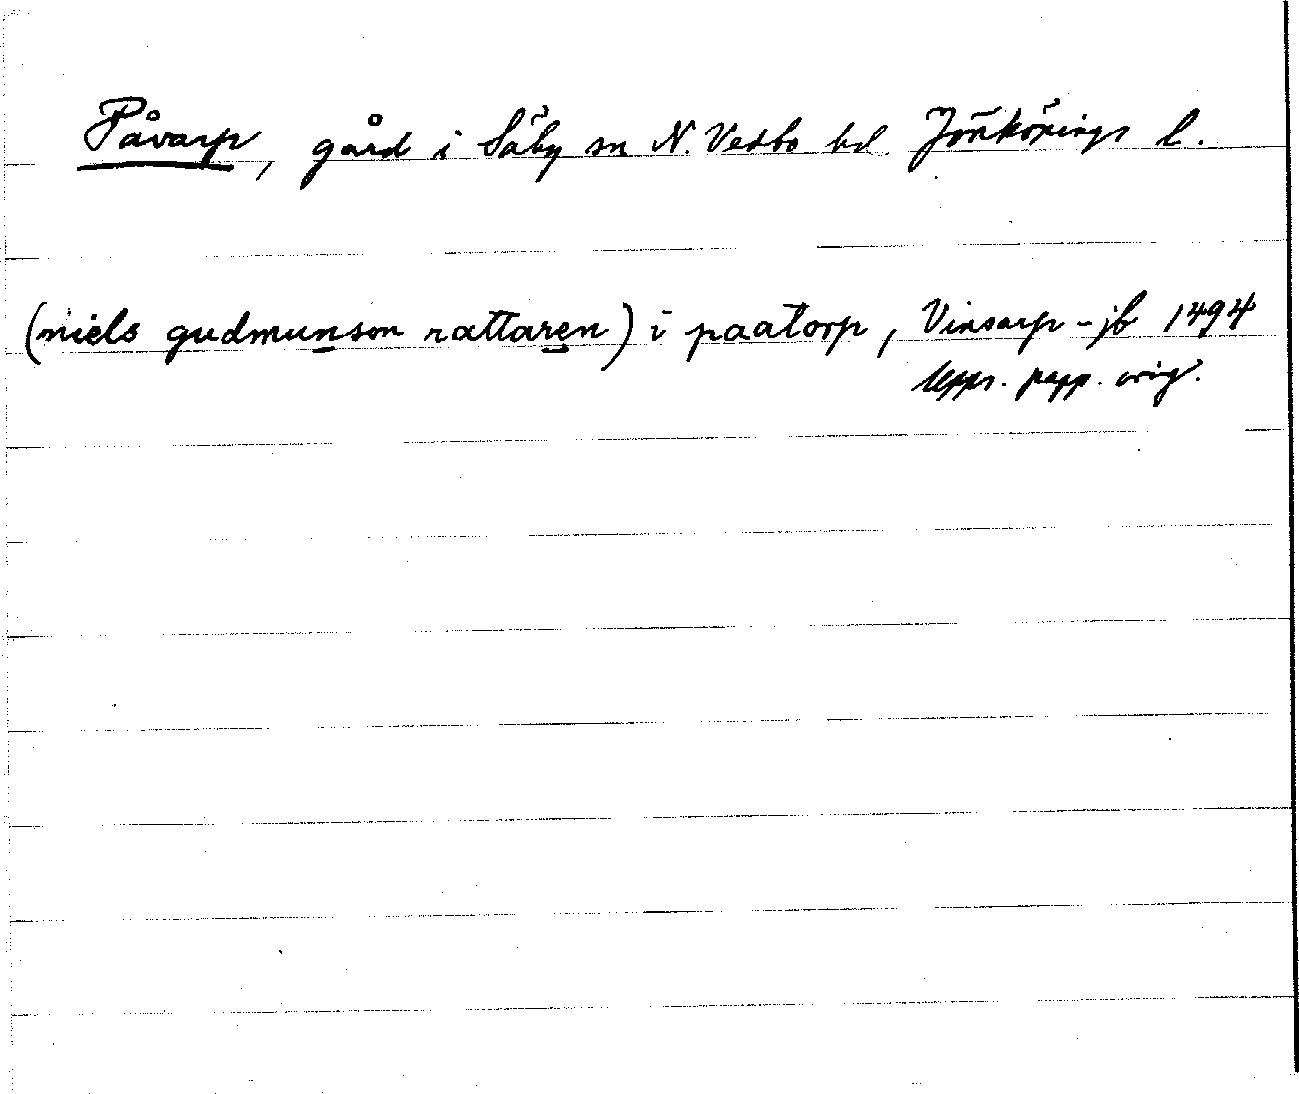 Påvarp, gård i Säby sn N. Vedbo hd Jönköpings l.
(niels gudmunson rattaren) i paatorp, Vinsarp-jb 1494
Upps. papp. orig.